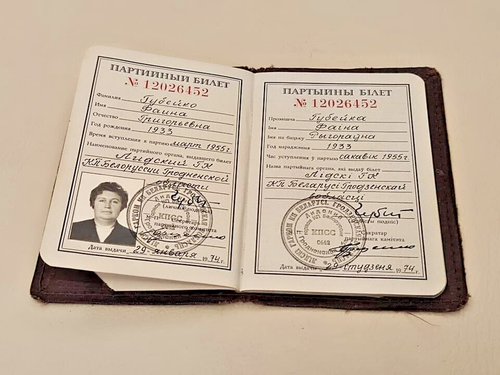 ПАРТИЙНЫЙ БИЛЕТ
№ 12026452
Фамилия Губейко
Имя Фаина
Отчество Григорьевна
Год рождения 1933
Время вступления в партию март 1955г.
Наименование партийного органа, выдавшего билет
Лидский ГК
КП Белоруссии Гродненской
области
(личная
Дата выдачи 29 января 1974 г.
ПАРТЫЙНЫ БІЛЕТ
№ 12026452
Прозвішча Губейка
Імя Фаіна
Імя па бацьку Рыгораўна
Год нараджэння 1933
Час уступлення ў партыю сакавік 1955г.
Назва партыйнага органа, які выдаў білет
Лідскі ГК
КП Беларусі Гродзенскай
вобласці
подпіс)
КПСС
сакратар
партыйнага камітэта
Дата выдачы 29 студзеня 1974 г.